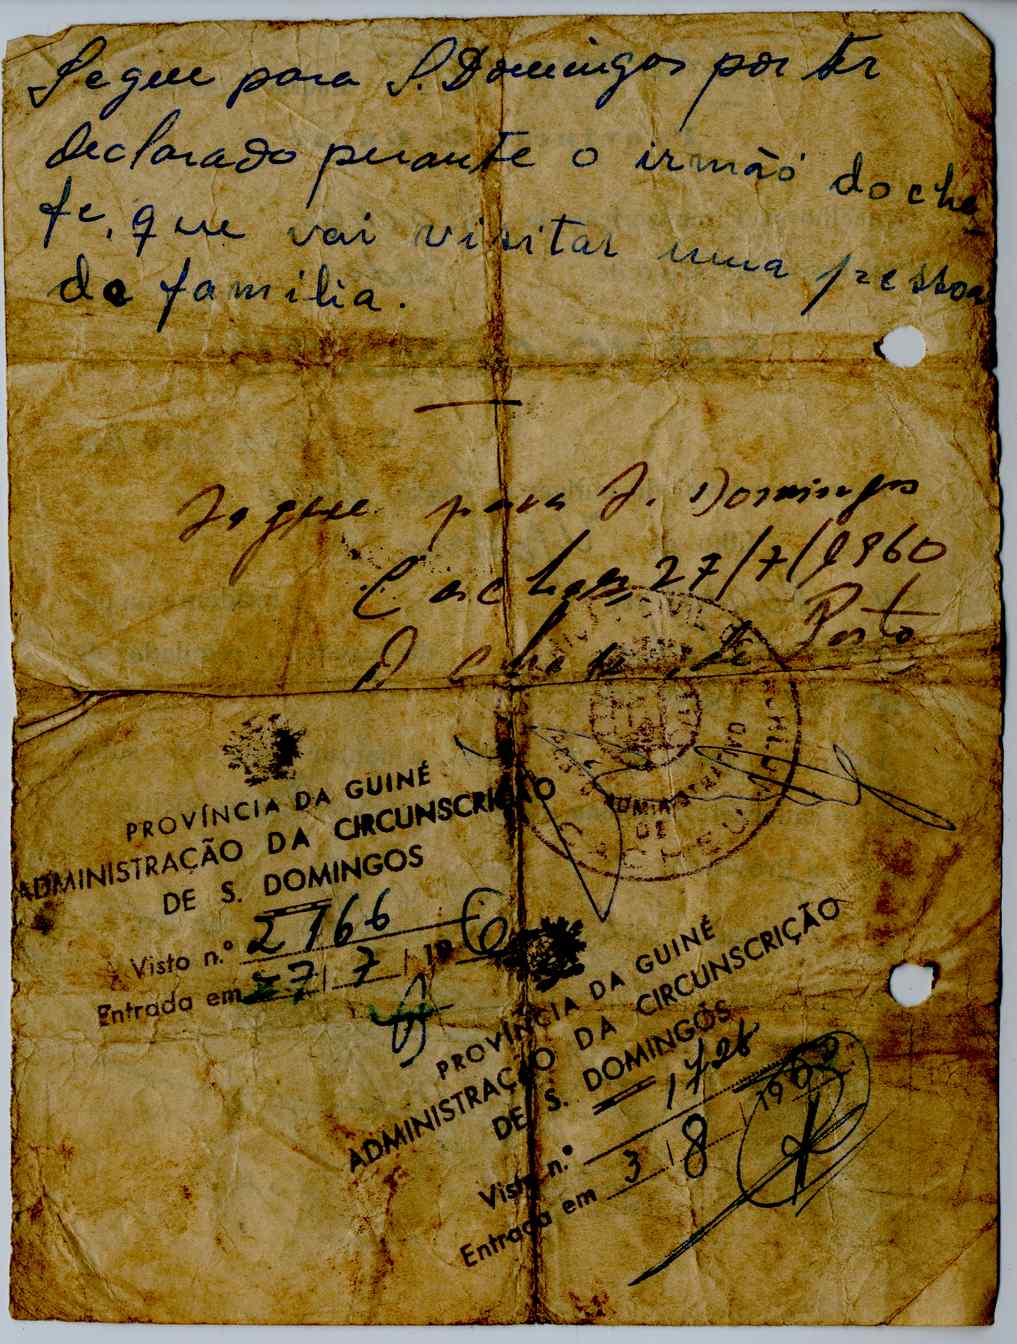 Segue para S. Domingos por ter
declarado perante o irmão do che
fe, que vai visitar uma pessoa
da familia.
Segue para S. Domingos
Cacheu 27/7/1960
O Chefe de Posto
PROVÍNCIA DA GUINÉ
ADMINISTRAÇÃO DA CIRCUNSCRIÇÃO
DE S. DOMINGOS
Visto n.º 2766
Entrada em 27/7/196
PROVÍNCIA DA GUINÉ
ADMINISTRAÇÃO DA CIRCUNSCRIÇÃO
DE S. DOMINGOS
Visto n.º 1726
Entrada em 3/8/1962